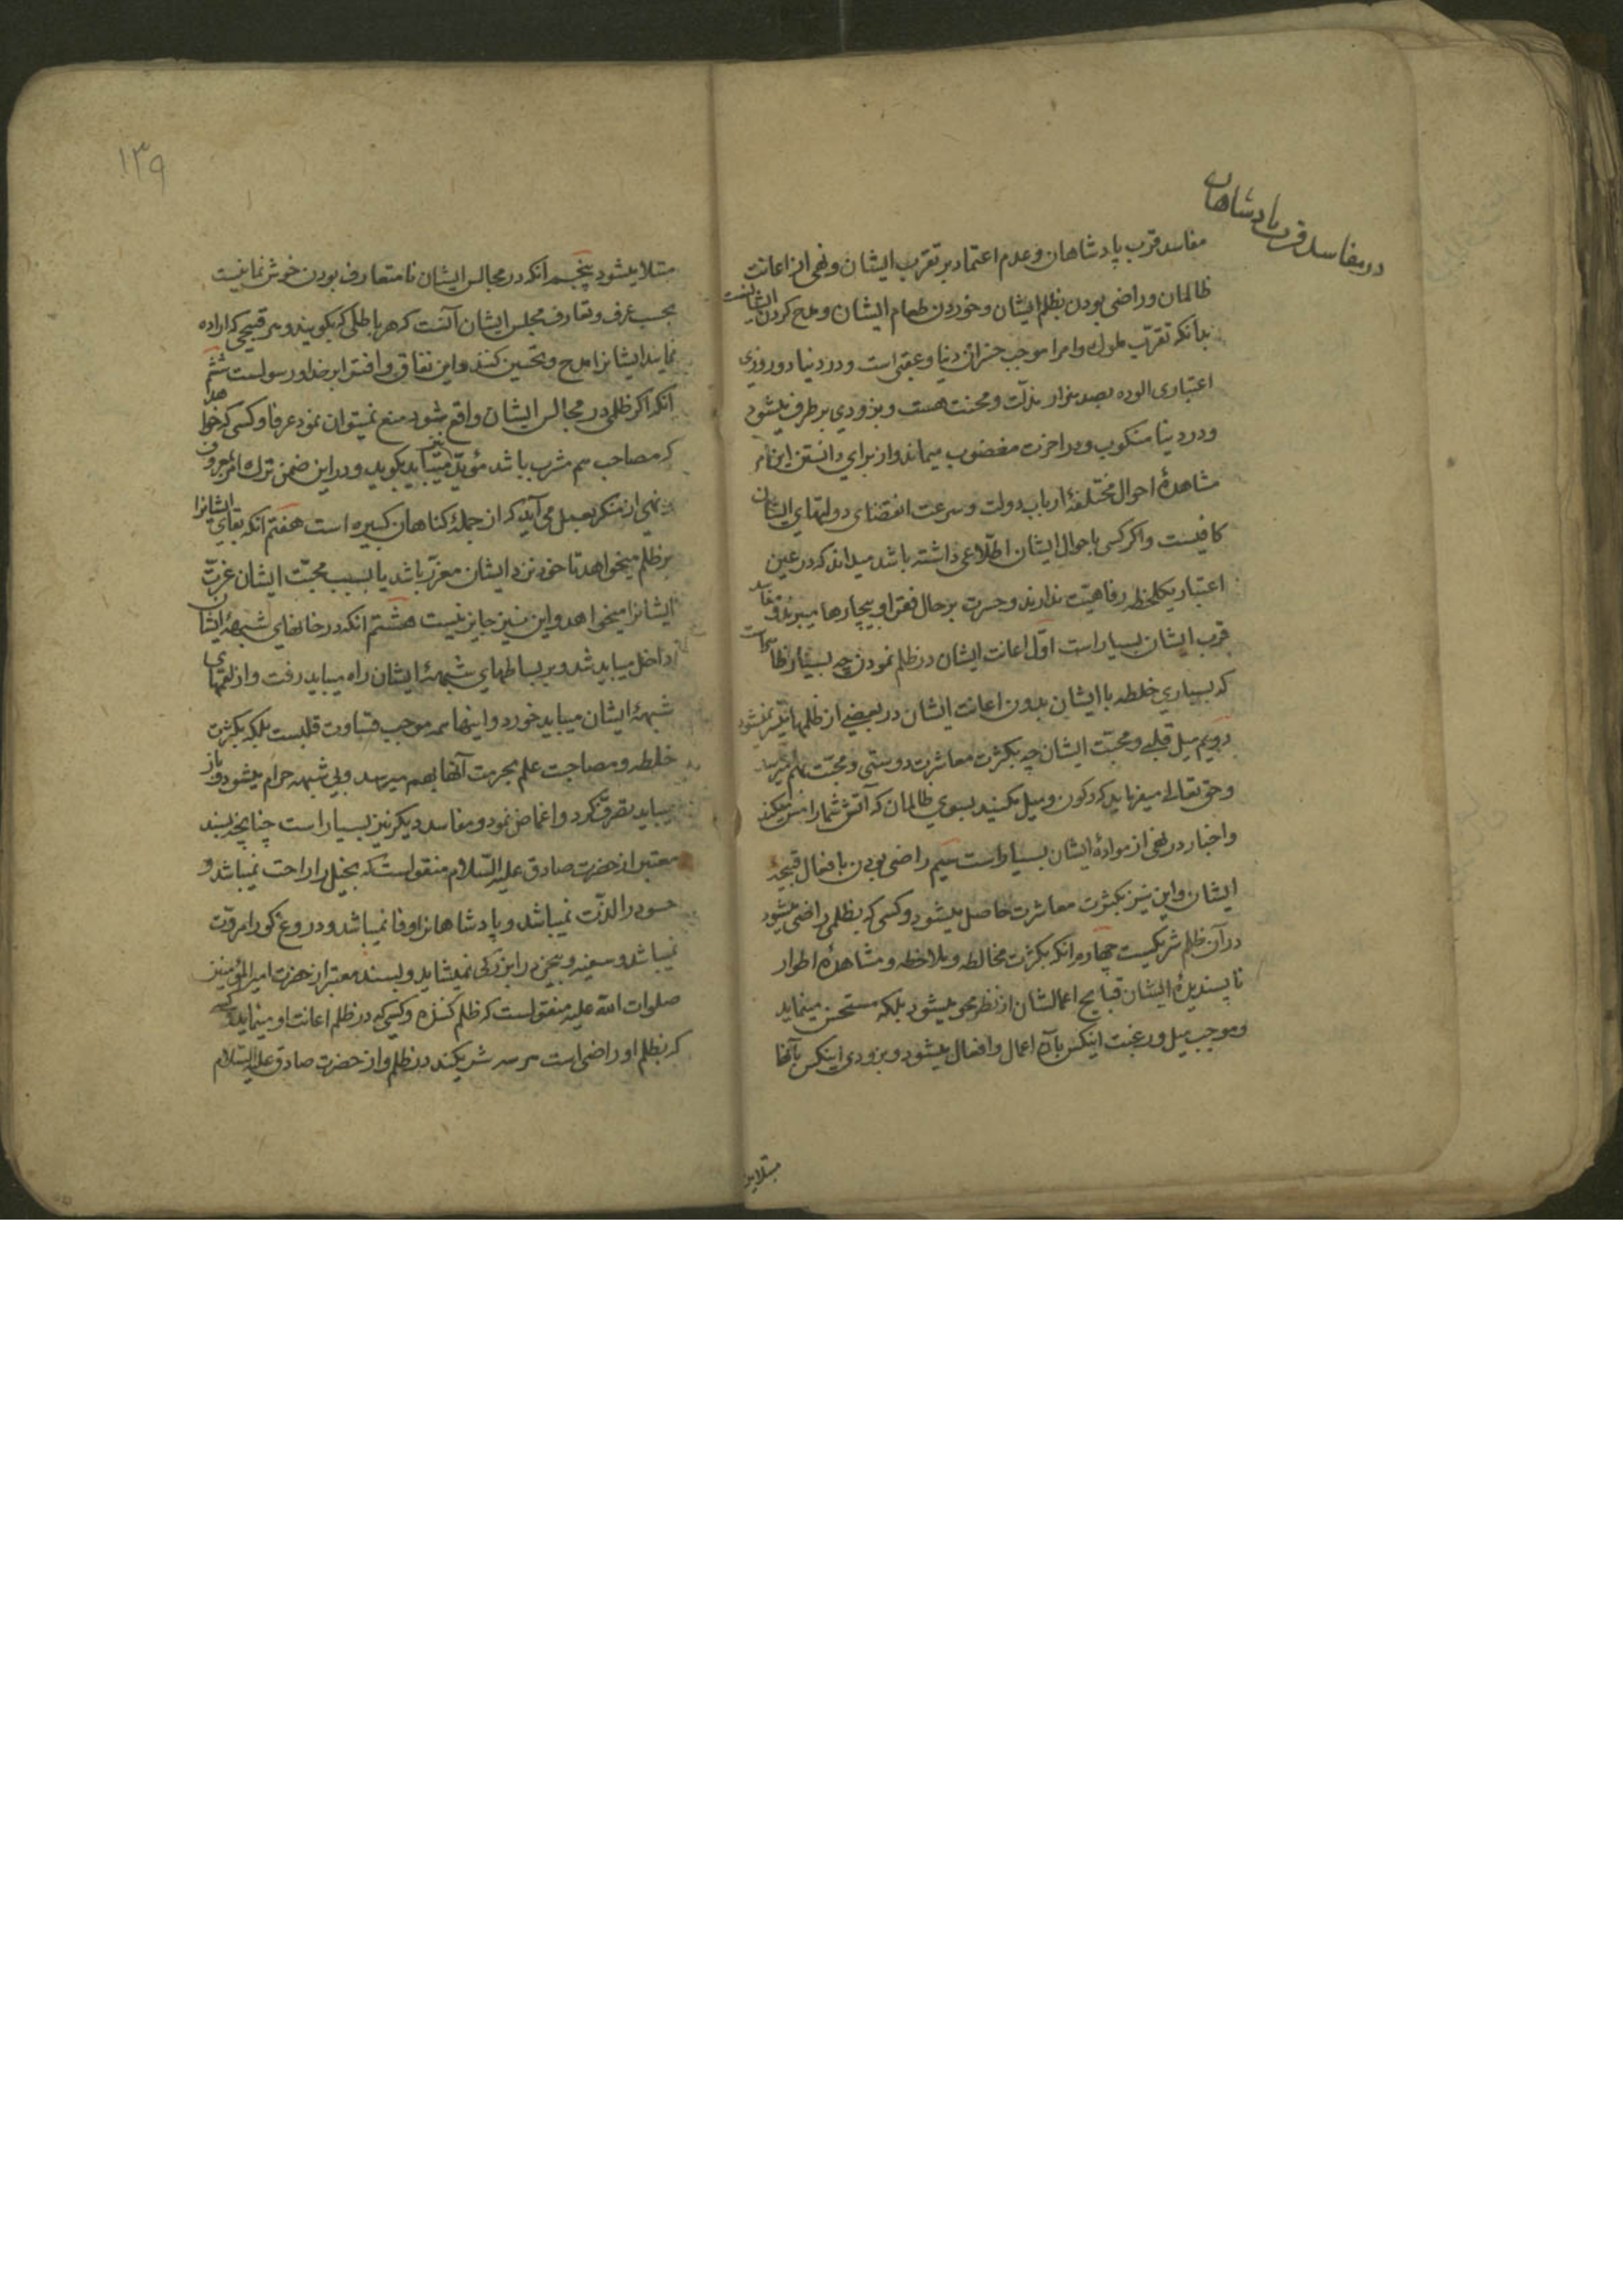 در مفاسد قرب پادشاهان
مفاسد قرب پادشاهان و عدم اعتماد بر تقرب ایشان و نهی از اعانت
ظالمان و راضی بودن بظلم ایشان و خوردن طعام ایشان و مدح کردن ایشانست
بدانکه تقرّب ملوک و امرا موجب خسران دنیا و عقبی است و در دنیا دو روزی
اعتباری آلوده بصد هزار مذلّت و محنت هست و بزودی برطرف میشود
و در دنیا منکوب و در آخرت مغضوب میماند و از برای دانستن این امر
مشاهدۀ احوال مختلفۀ ارباب دولت و سرعت انقضای دولتهای ایشان
کافیست و اکر کسی باحوال ایشان اطّلاعی داشته باشد میداند که در عین
اعتبار یکلحظه رفاهیّت ندارند و حسرت بر حال فقرا و بیچارها میبرند و مفاسد
قرب ایشان بسیار است اوّل اعانت ایشان در ظلم نمودن چه بسیار ظاهر است
که بسیاری خلطه با ایشان بدون اعانت ایشان در بعضی از ظلمها میّسر نمیشود
دویم میل قلبی و محبّت ایشان چه بکثرت معاشرت دوستی و محبّت بهم میرسد
و حق تعالی میفرماید که رکون و میل مکنید بسوی ظالمان که آتش شما را مس میکند
و اخبار در نهی از موادۀ ایشان بسیار است سیم راضی بودن بافعال قبیحۀ
ایشان و این نیز بکثرت معاشرت حاصل میشود و کسی که بظلمی راضی میشود
در آن ظلم شریکست چهارم آنکه بکثرت مخالطه و ملاحظه و مشاهدۀ اطوار
ناپسندیدۀ ایشان قبایح اعمالشان از نظر محو میشود بلکه مستحسن مینماید
و موجب میل و رغبت اینکس بآن اعمال و افعال میشود و بزودی اینکس بآنها
مبتلا
۱۳۹
مبتلا میشود پنجم آنکه در مجالس ایشان نامتعارف بودن خوش نما نیست
بحسب عرف و تعارف مجلس ایشان آنست که هر باطلی که بکویند و هر قبیحی که اراده
نمایند ایشانرا مدح و تحسین کنند و این نفاق و افترا بر خدا و رسولست ششم
آنکه اکر ظلمی در مجالس ایشان واقع شود منع نمیتوان نمود عرفا و کسی که خواهد
که مصاحب هم مشرب باشد مؤیّد نیز میباید بکوید و در این ضمن ترک امر بمعروف
و نهی از منکر بعمل می آید که از جملۀ کناهان کبیره است هفتم آنکه بقای ایشانرا
بر ظلم میخواهد تا خود نزد ایشان معزّز باشد یا بسبب محبّت ایشان عزّت
ایشانرا میخواهد و این نیز جایز نیست هشتم آنکه در خانهای شبهۀ ایشان
داخل میباید شد و بر بساطهای شبهۀ ایشان راه میباید رفت و از لقمهای
شبهۀ ایشان میباید خورد و اینها همه موجب قساوت قلبست بلکه بکثرت
خلطه و مصاحبت علم بحرمت آنها بهم میرسد و بی شبهه حرام میشود و باز
میباید تصرّف کرد و اغماض نمود و مفاسد دیکر نیز بسیار است چنانچه بسند
معتبر از حضرت صادق علیه السّلام منقولست که بخیل را راحت نمیباشد و
حسود را لذّت نمیباشد و پادشاهانرا وفا نمیباشد و دروغ کو را مروّت
نمیباشد و سفیه و بیخرد را بزرکی نمیشاید و بسند معتبر از حضرت امیر المؤمنین
صلوات اللّه علیه منقولست که ظلم کننده و کسی که در ظلم اعانت او مینماید و کسی
که بظلم او راضی است هر سه شریکند در ظلم و از حضرت صادق علیه السّلام